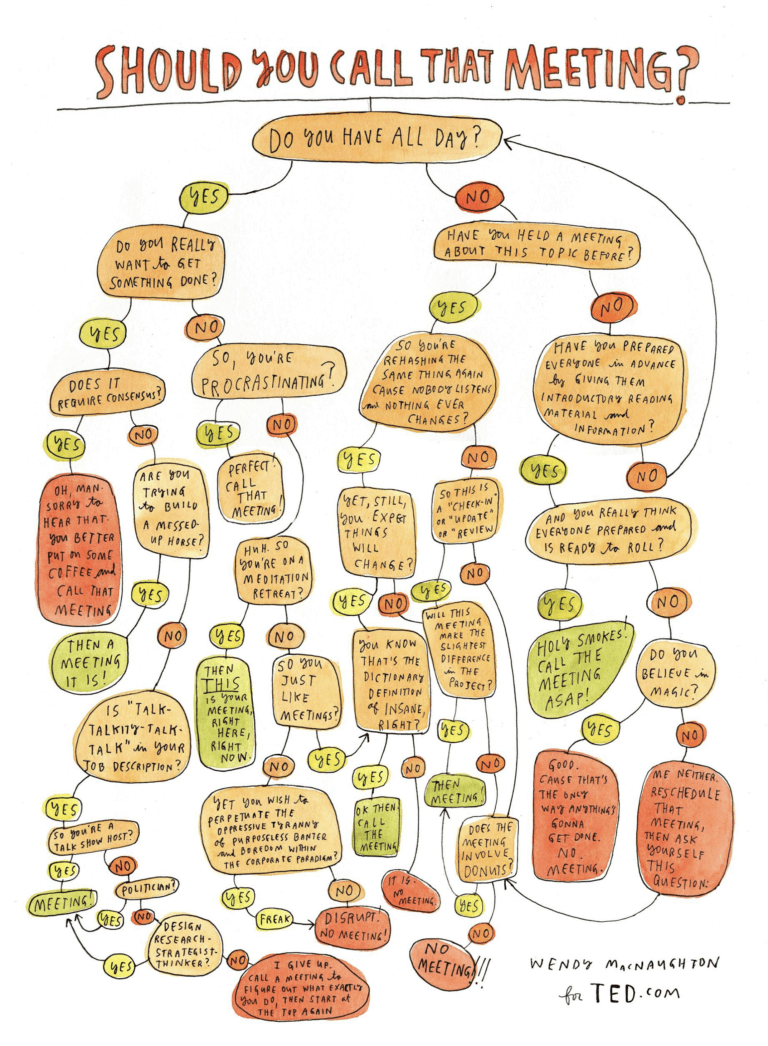 SHOULD YOU CALL THAT MEETING?
DO YOU HAVE ALL DAY?
YES
NO
DO YOU REALLY
WANT to GET
SOMETHING DONE?
HAVE YOU HELD A MEETING
ABOUT THIS TOPIC BEFORE?
YES
NO
YES
NO
DOES IT
REQUIRE CONSENSUS?
SO, YOU'RE
PROCRASTINATING?
SO YOU'RE
REHASHING THE
SAME THING AGAIN
CAUSE NOBODY LISTENS
and NOTHING EVER
CHANGES?
HAVE YOU PREPARED
EVERYONE in ADVANCE
by GIVING THEM
INTRODUCTORY READING
MATERIAL and
INFORMATION?
YES
NO
YES
NO
YES
NO
YES
NO
OH, MAN.
SORRY to
HEAR THAT.
YOU BETTER
PUT ON SOME
COFFEE and
CALL THAT
MEETING
ARE YOU
TRYING
to BUILD
A MESSED-
UP HORSE?
PERFECT!
CALL
THAT
MEETING!
YET, STILL,
YOU EXPECT
THINGS
WILL
CHANGE?
SO THIS IS
A "CHECK-IN"
OR "UPDATE"
OR "REVIEW
AND YOU REALLY THINK
EVERYONE PREPARED and
IS READY to ROLL?
HUH. SO
YOU'RE ON A
MEDITATION
RETREAT?
YES
NO
YES
NO
YES
NO
YES
NO
YES
NO
THEN A
MEETING
IT IS!
THEN
THIS
IS YOUR
MEETING,
RIGHT
HERE,
RIGHT
NOW.
SO YOU
JUST
LIKE
MEETINGS?
YOU KNOW
THAT'S THE
DICTIONARY
DEFINITION
of INSANE,
RIGHT?
WILL THIS
MEETING
MAKE THE
SLIGHTEST
DIFFERENCE
in THE
PROJECT?
HOLY SMOKES!
CALL THE
MEETING
ASAP!
DO YOU
BELIEVE in
MAGIC?
IS "TALK-
TALKITY-TALK-
TALK" in YOUR
JOB DESCRIPTION?
NO
YES
YES
NO
YES
NO
YES
NO
YES
NO
YES
SO YOU'RE A
TALK SHOW HOST?
YET YOU WISH to
PERPETUATE THE
OPPRESSIVE TYRANNY
of PURPOSELESS BANTER
and BOREDOM WITHIN
THE CORPORATE PARADIGM?
OK THEN.
CALL
THE
MEETING
THEN
MEETING!
GOOD.
CAUSE THAT'S
THE ONLY
WAY ANYTHING'S
GONNA
GET DONE.
NO
MEETING.
ME NEITHER.
RESCHEDULE
THAT
MEETING,
THEN ASK
YOURSELF
THIS
QUESTION:
DOES THE
MEETING
INVOLVE
DONUTS?
YES
NO
MEETING!
POLITICIAN?
YES
NO
YES
NO
FREAK
DISRUPT!
NO MEETING!
IT IS.
NO
MEETING
YES
NO
NO
MEETING!!!
DESIGN
RESEARCH-
STRATEGIST-
THINKER?
YES
NO
I GIVE UP.
CALL A MEETING to
FIGURE OUT WHAT EXACTLY
YOU DO, THEN START at
THE TOP AGAIN
WENDY MACNAUGHTON
for TED.COM